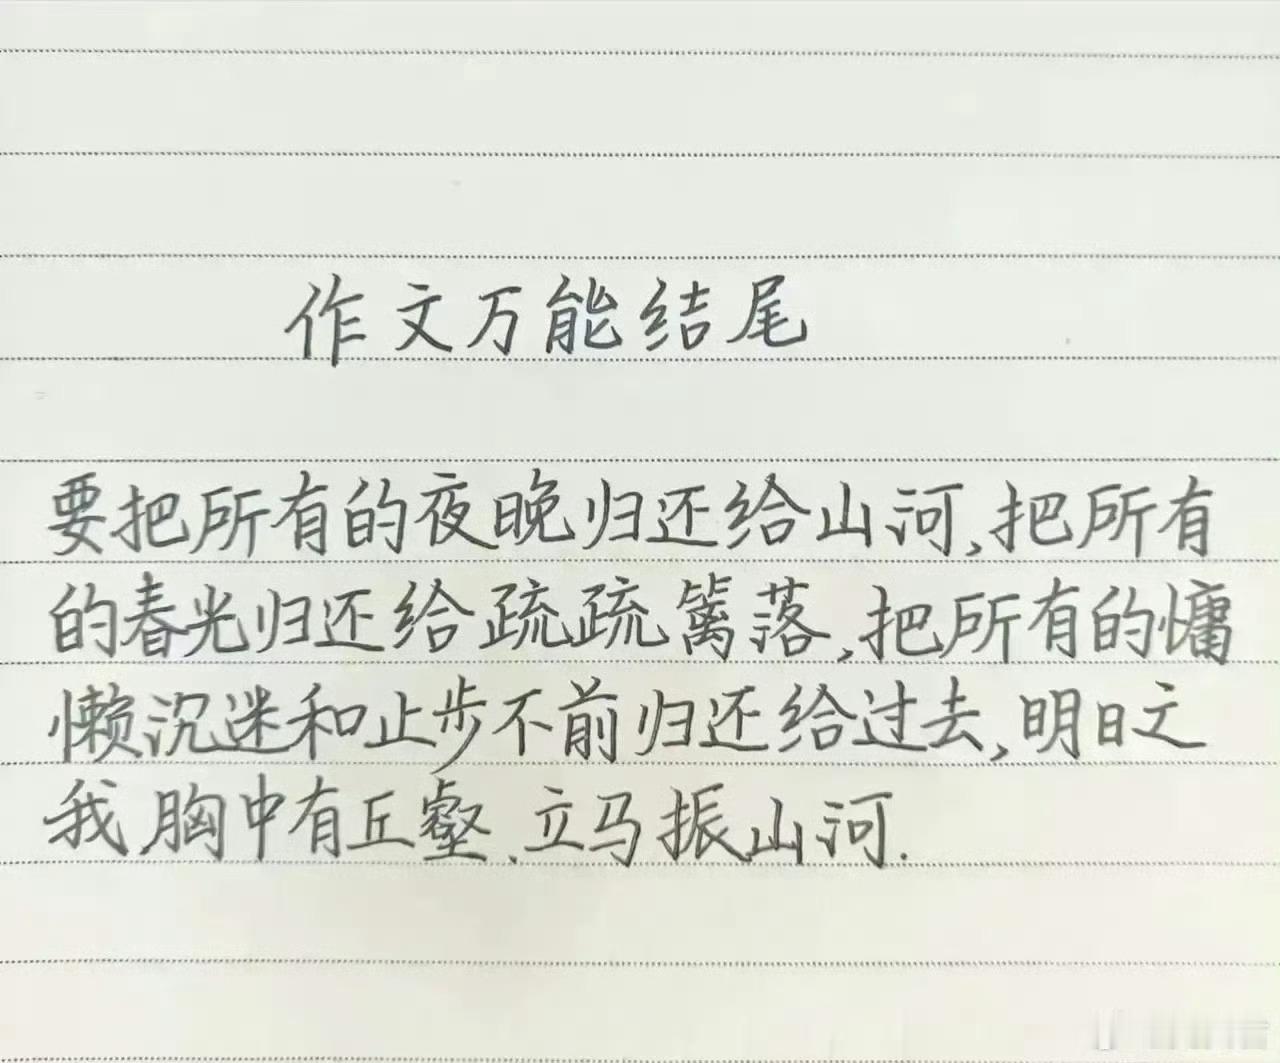 作文万能结尾
要把所有的夜晚归还给山河,把所有
的春光归还给疏疏篱落,把所有的慵
懒沉迷和止步不前归还给过去,明日之
我,胸中有丘壑、立马振山河.